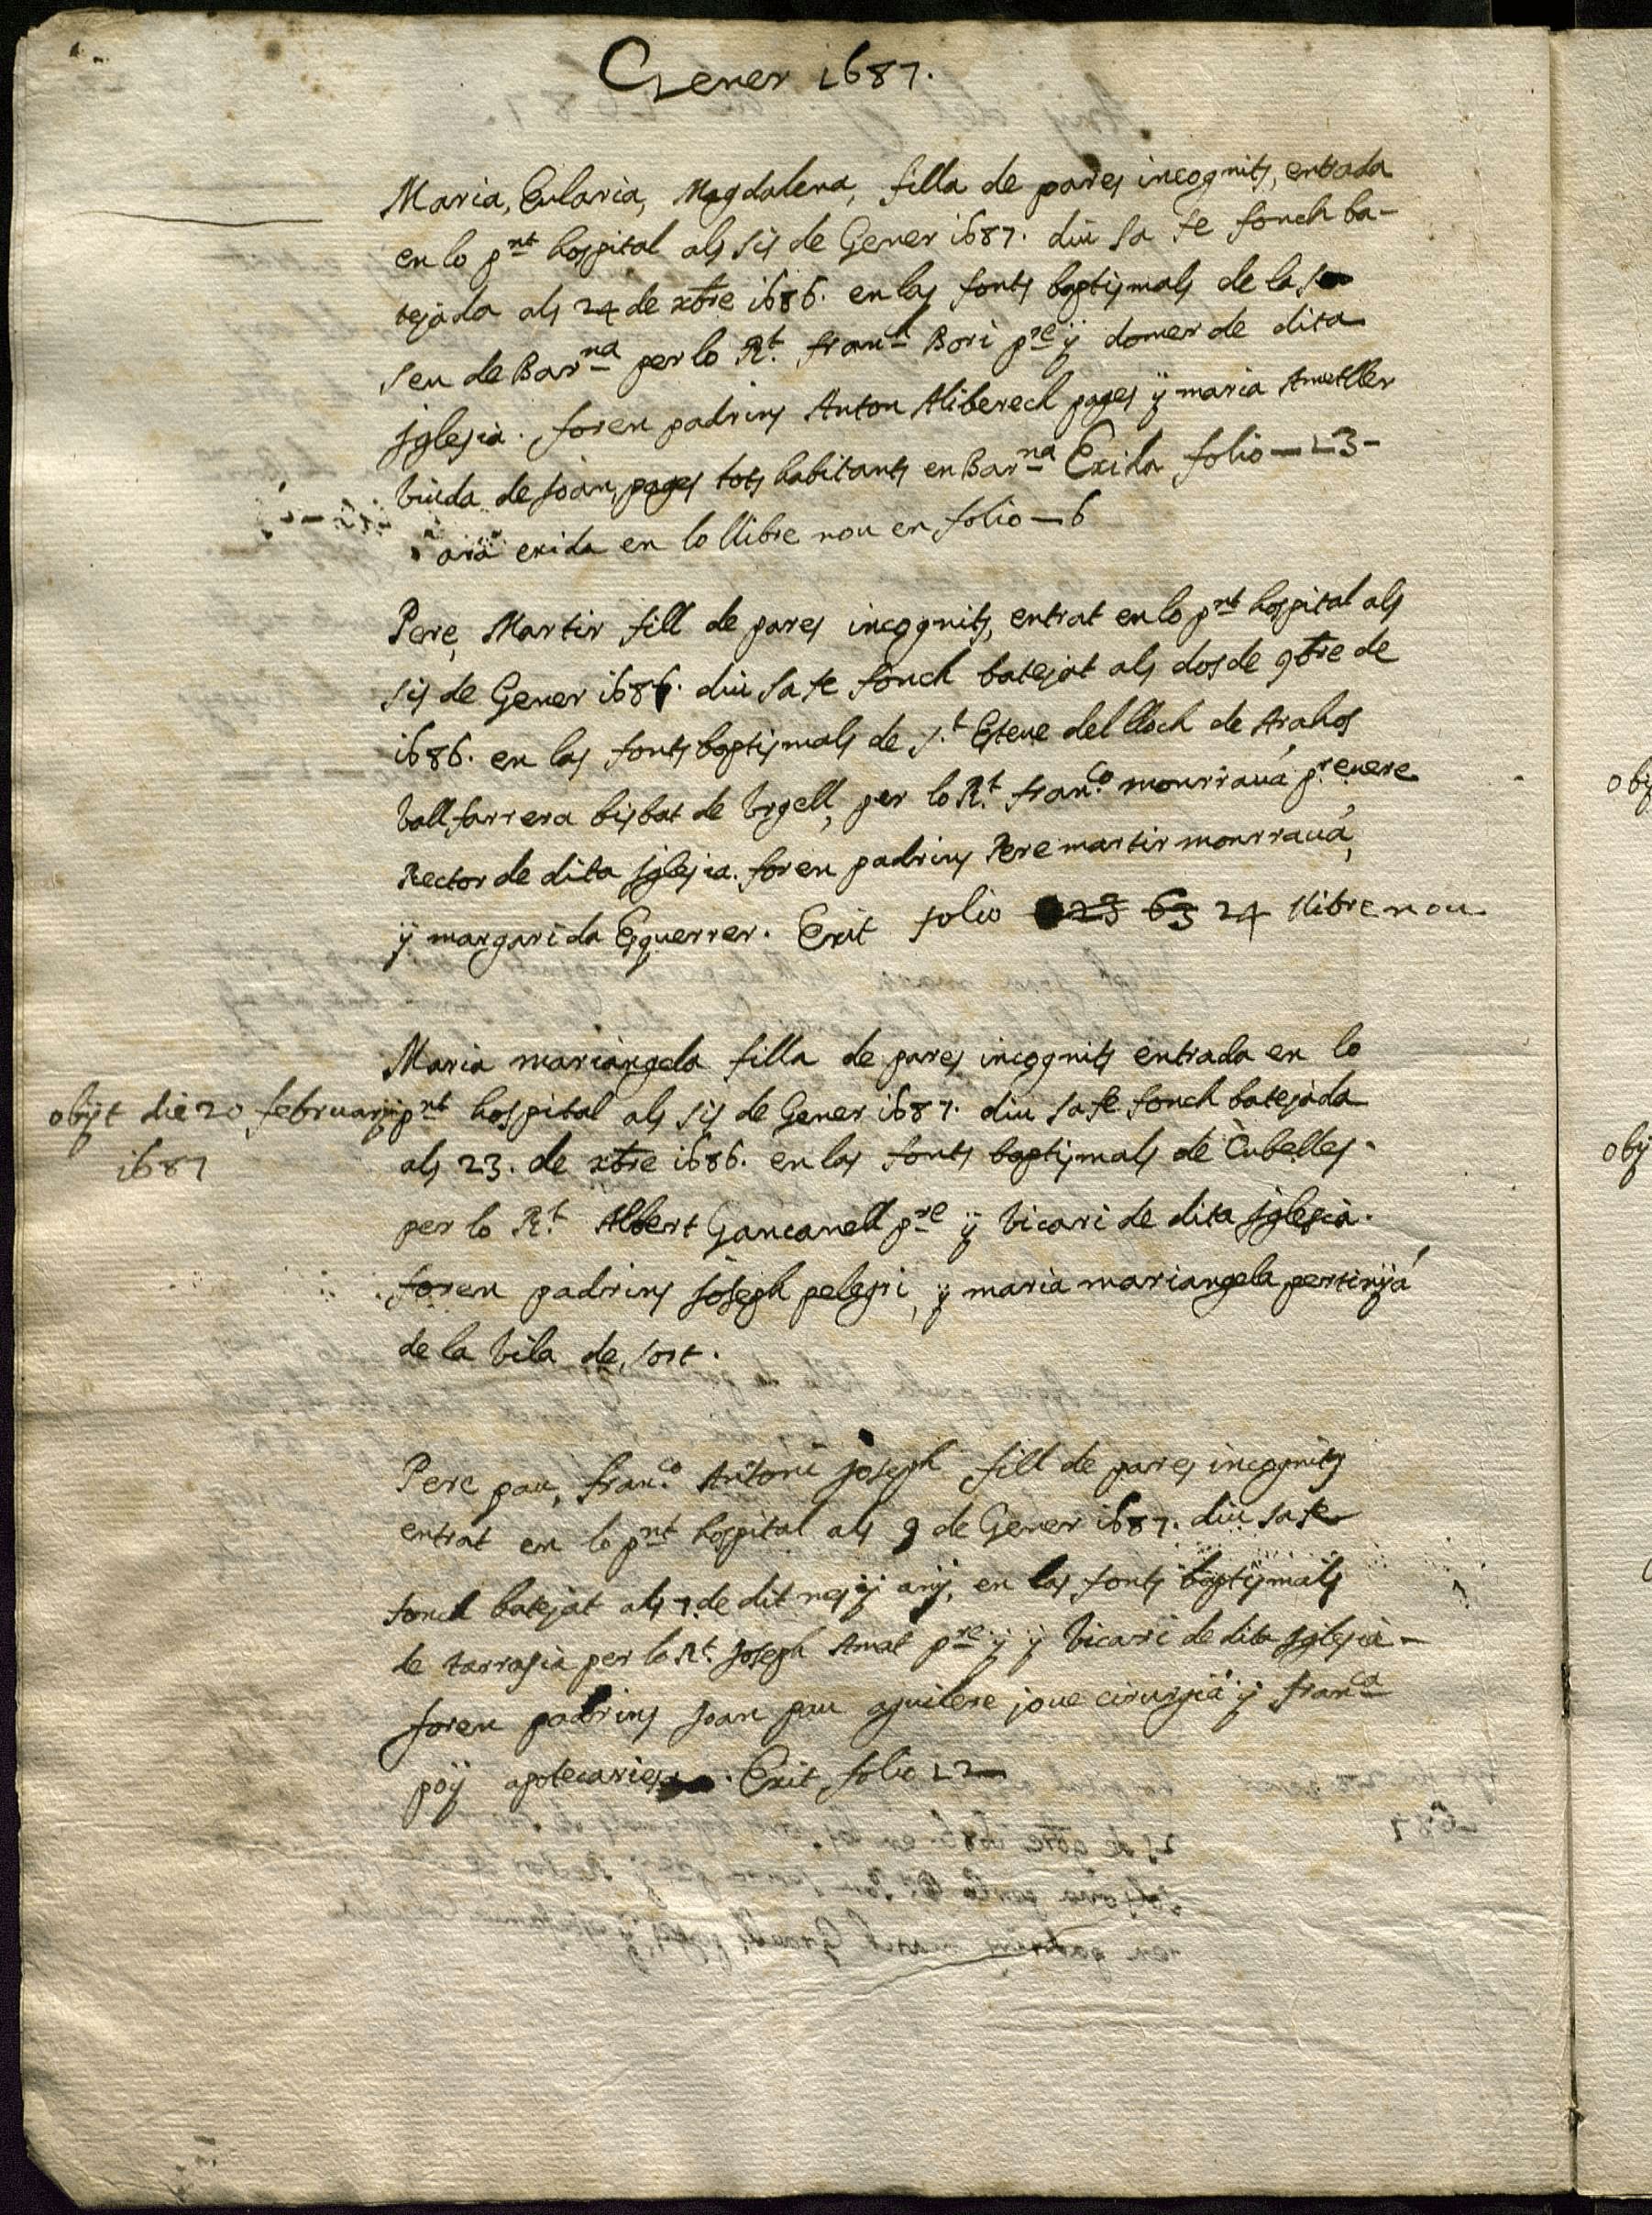 Gener 1687.
Maria, Eularia, Magdalena, filla de pares incognits, entrada
en lo pnt hospital als sis de Gener 1687. diu sa fe fonch ba-
tejada als 24 de xbre 1686. en las fonts baptismals de la
seu de Barna per lo Rt. franch Bori pre y domer de dita
jglesia. foren padrins Anton Aliberech pages ÿ maria Ametller
viuda de joan, pages tots habitants en Barna Exida folio — 23 -
ara exida en lo llibre nou en folio — 6
Pere, Martir fill de pares incognits, entrat en lo pnt hospital als
sis de Gener 1687. diu sa fe fonch batejat als dos de 9bre de
1686. en las fonts baptismals de St. Esteue del lloch de Arahos
Vall,farrera bisbat de Vrgell, per lo Rt. franco mourrauá, preuere
Rector de dita jglesia. foren padrins Pere martir mourrauá,
ÿ margarida Esquerrer. Exit folio 23 63 24 llibre nou
Maria mariangela filla de pares incognits entrada en lo
obijt die 20 februarij
1687
pnt hospital als sis de Gener 1687. diu sa fe fonch batejada
als 23. de xbre 1686. en las fonts baptismals de Cubelles -
per lo Rt. Albert Gancanell pre ÿ vicari de dita jglesia.
foren padrins joseph pelegri, y maria mariangela pertinÿá
de la vila de, sort.
Pere pau, franco. Antoni joseph fill de pares incognits
entrat en lo pnt hospital als 9 de Gener 1687. diu sa fe
fonch batejat als 7. de dit mes ÿ anÿ, en las fonts baptismals
de tarrasia per lo Rt. Joseph Amat pre ÿ y vicari de dita jglesia -
foren padrins joan pau aguilere joue cirurgiá ÿ franca
poÿ apotecaries. Exit folio 22